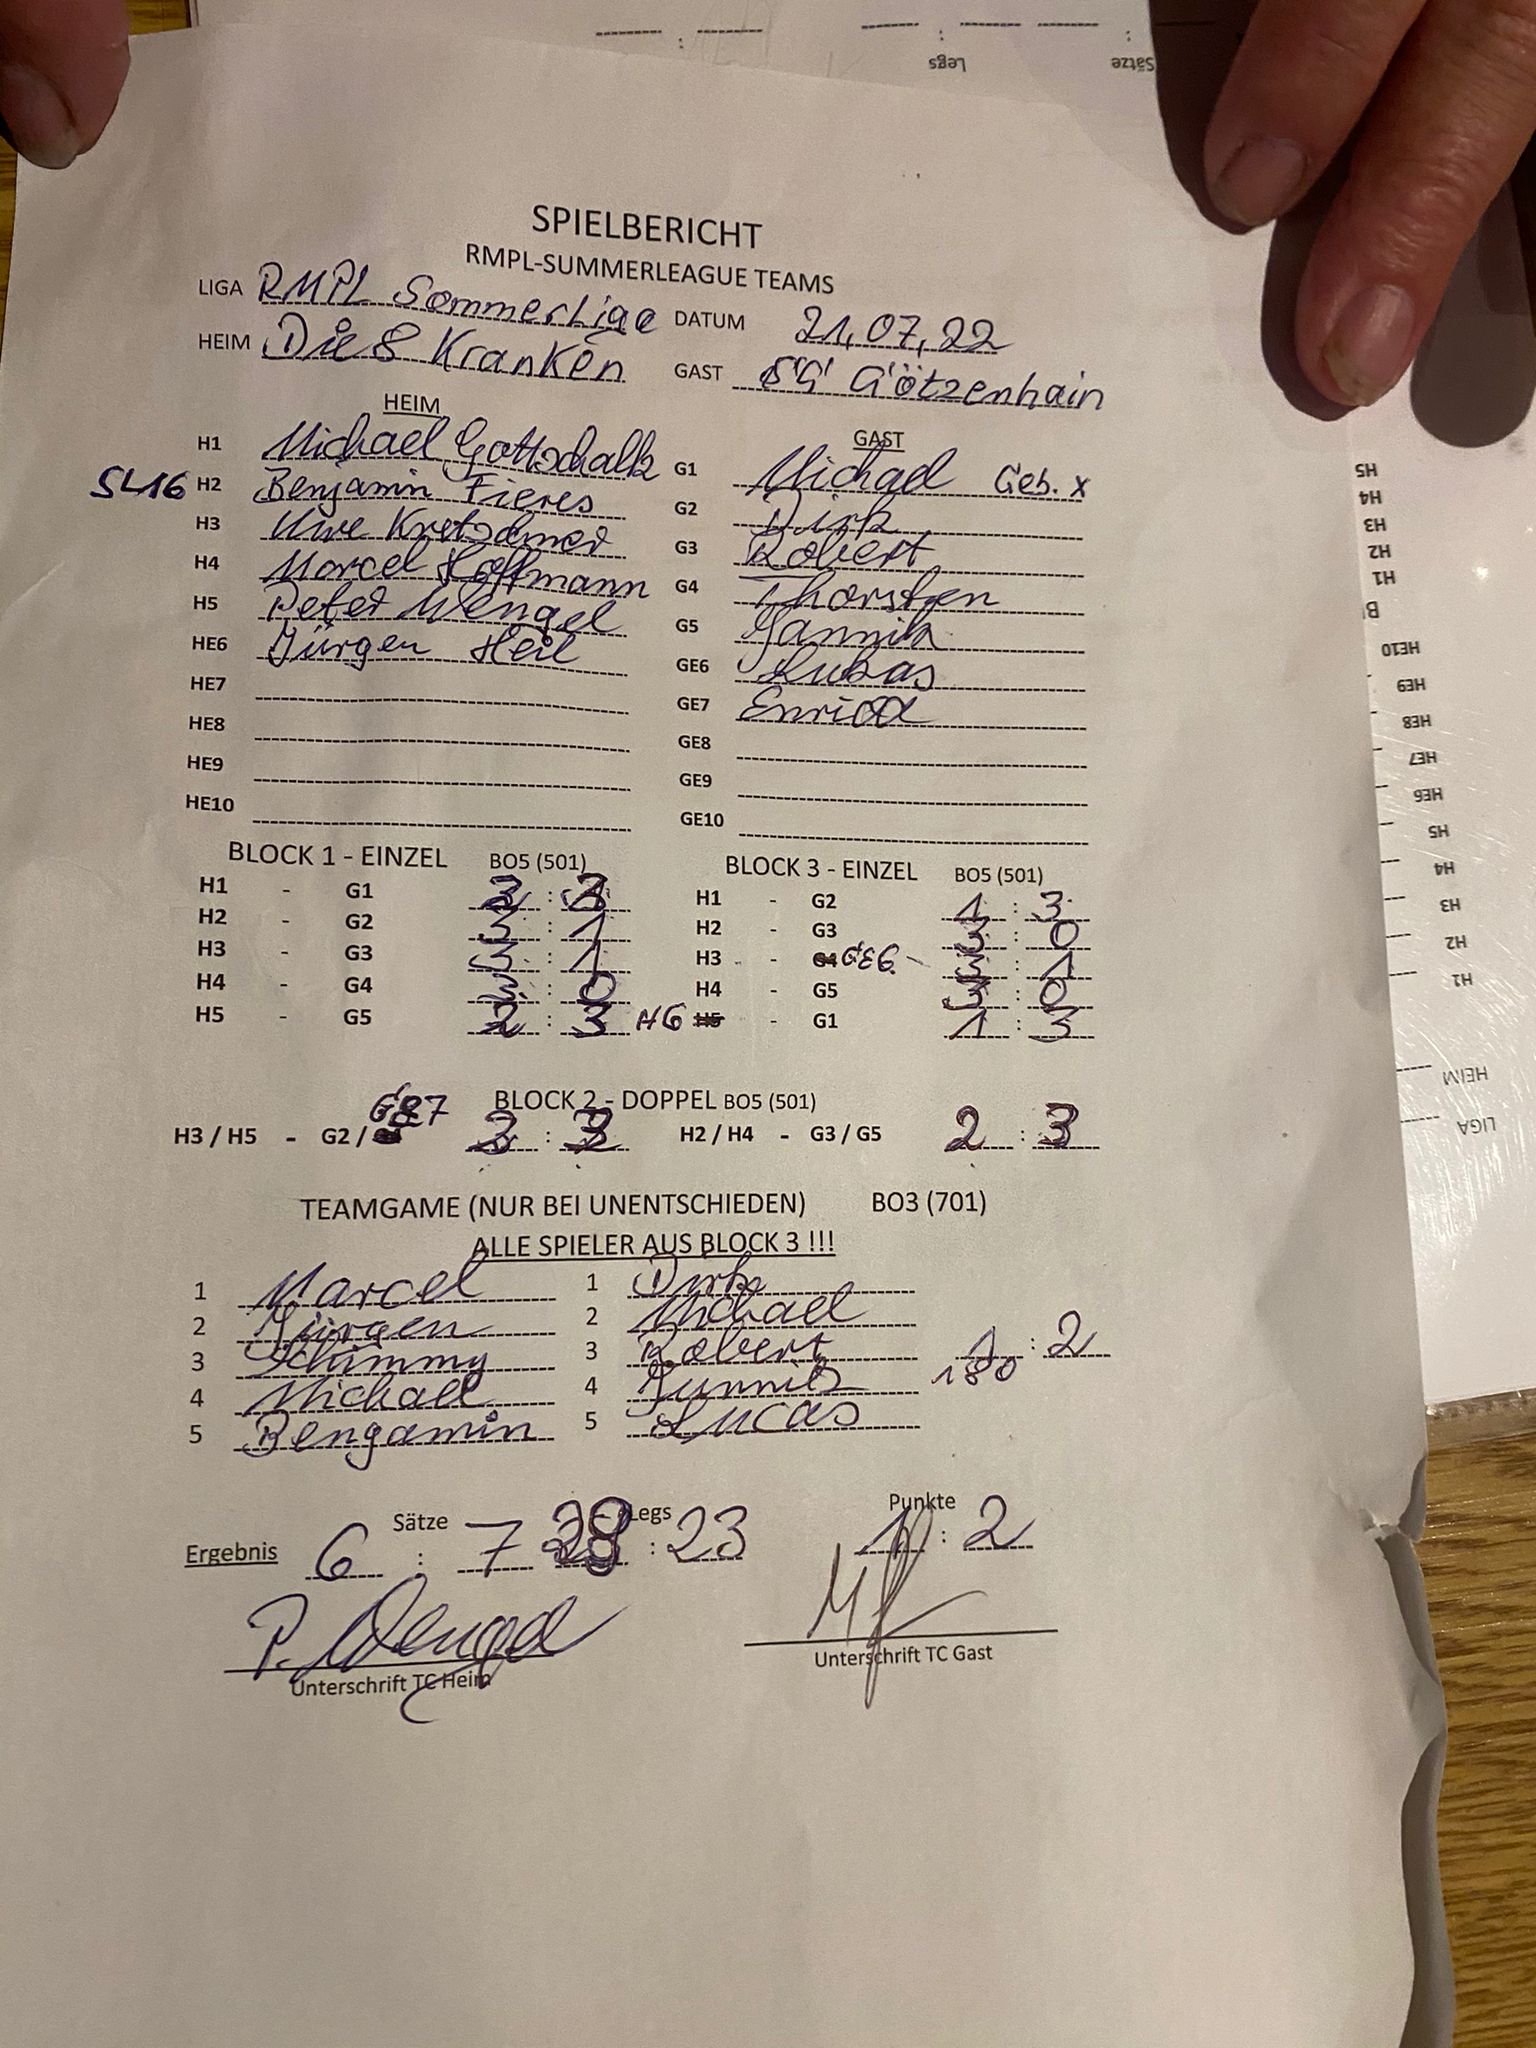 Legs
Sätze
SPIELBERICHT
RMPL-SUMMERLEAGUE TEAMS
LIGA RMPL SommerLige DATUM 21,07,22
HEIM Die 8 Kranken GAST SG Götzenhain
HEIM GAST
H1 Michael Gottschalk G1 Michael Geb. x
SL16 H2 Benjamin Fieres G2 Dirk
H3 Uwe Kretschmer G3 Robert
H4 Marcel Hoffmann G4 Thorsten
H5 Peter Wengel G5 Jannik
HE6 Jürgen Heil GE6 Lukas
HE7 GE7
HE8 GE8
HE9 GE9
HE10 GE10
BLOCK 1 - EINZEL BO5 (501) BLOCK 3 - EINZEL BO5 (501)
H1 - G1 : H1 - G2 1 : 3
H2 - G2 3 : 1 H2 - G3 3 : 0
H3 - G3 3 : 1 H3 - GE6 3 : 1
H4 - G4 3 : 0 H4 - G5 3 : 0
H5 - G5 2 : 3 H6 H5 - G1 1 : 3
BLOCK 2 - DOPPEL BO5 (501)
H3 / H5 - G2 / : H2 / H4 - G3 / G5 2 : 3
TEAMGAME (NUR BEI UNENTSCHIEDEN) BO3 (701)
ALLE SPIELER AUS BLOCK 3 !!!
1 Marcel 1 Dirk
2 Jürgen 2 Michael
3 Schimmy 3 Robert 1 : 2
4 Michael 4 Jannik 180
5 Bengamin 5 Lucas
Sätze Legs Punkte
Ergebnis 6 : 7 : 23 1 : 2
P. Wengel
Unterschrift TC Heim Unterschrift TC Gast
H5
H4
H3
H2
H1
HE10
HE9
HE8
HE7
HE6
H5
H4
H3
H2
H1
HEIM
LIGA